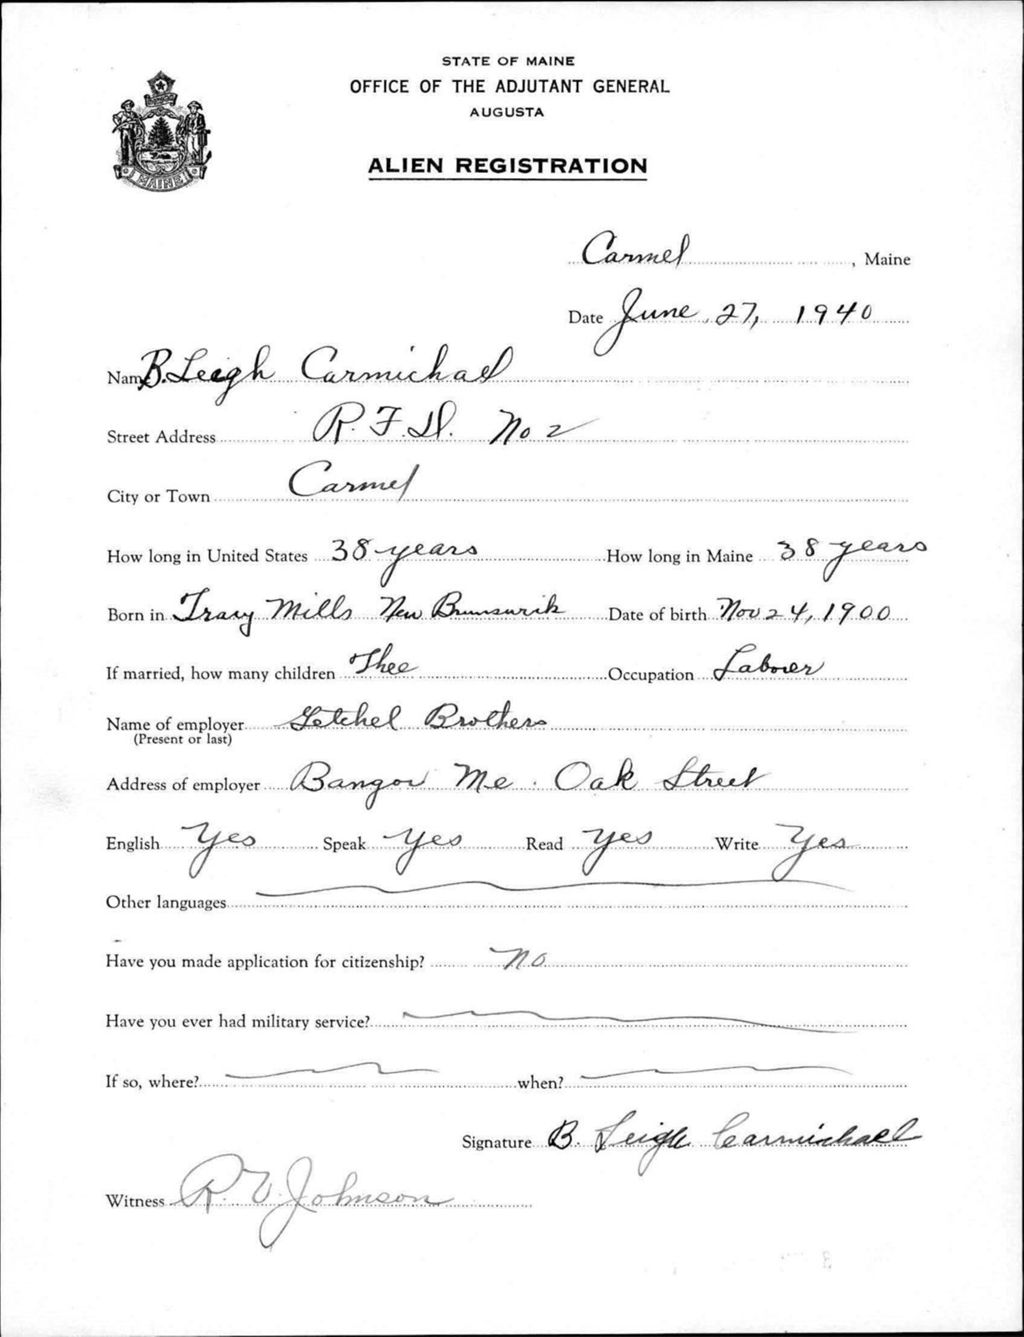 STATE OF MAINE
OFFICE OF THE ADJUTANT GENERAL
AUGUSTA
ALIEN REGISTRATION
MAINE
Carmel, Maine
Date June 27, 1940
Name B. Leigh Carmichael
Street Address R.F.D. No 2
City or Town Carmel
How long in United States 38 years How long in Maine 38 years
Born in Tracy Mills New Brunswick Date of birth Nov 24, 1900
If married, how many children Thee Occupation Laborer
Name of employer Getchel Brothers
(Present or last)
Address of employer Bangor Me. Oak Street
English Yes Speak Yes Read Yes Write Yes
Other languages
Have you made application for citizenship? No
Have you ever had military service?
If so, where? when?
Signature B. Leigh Carmichael
Witness R V Johnson